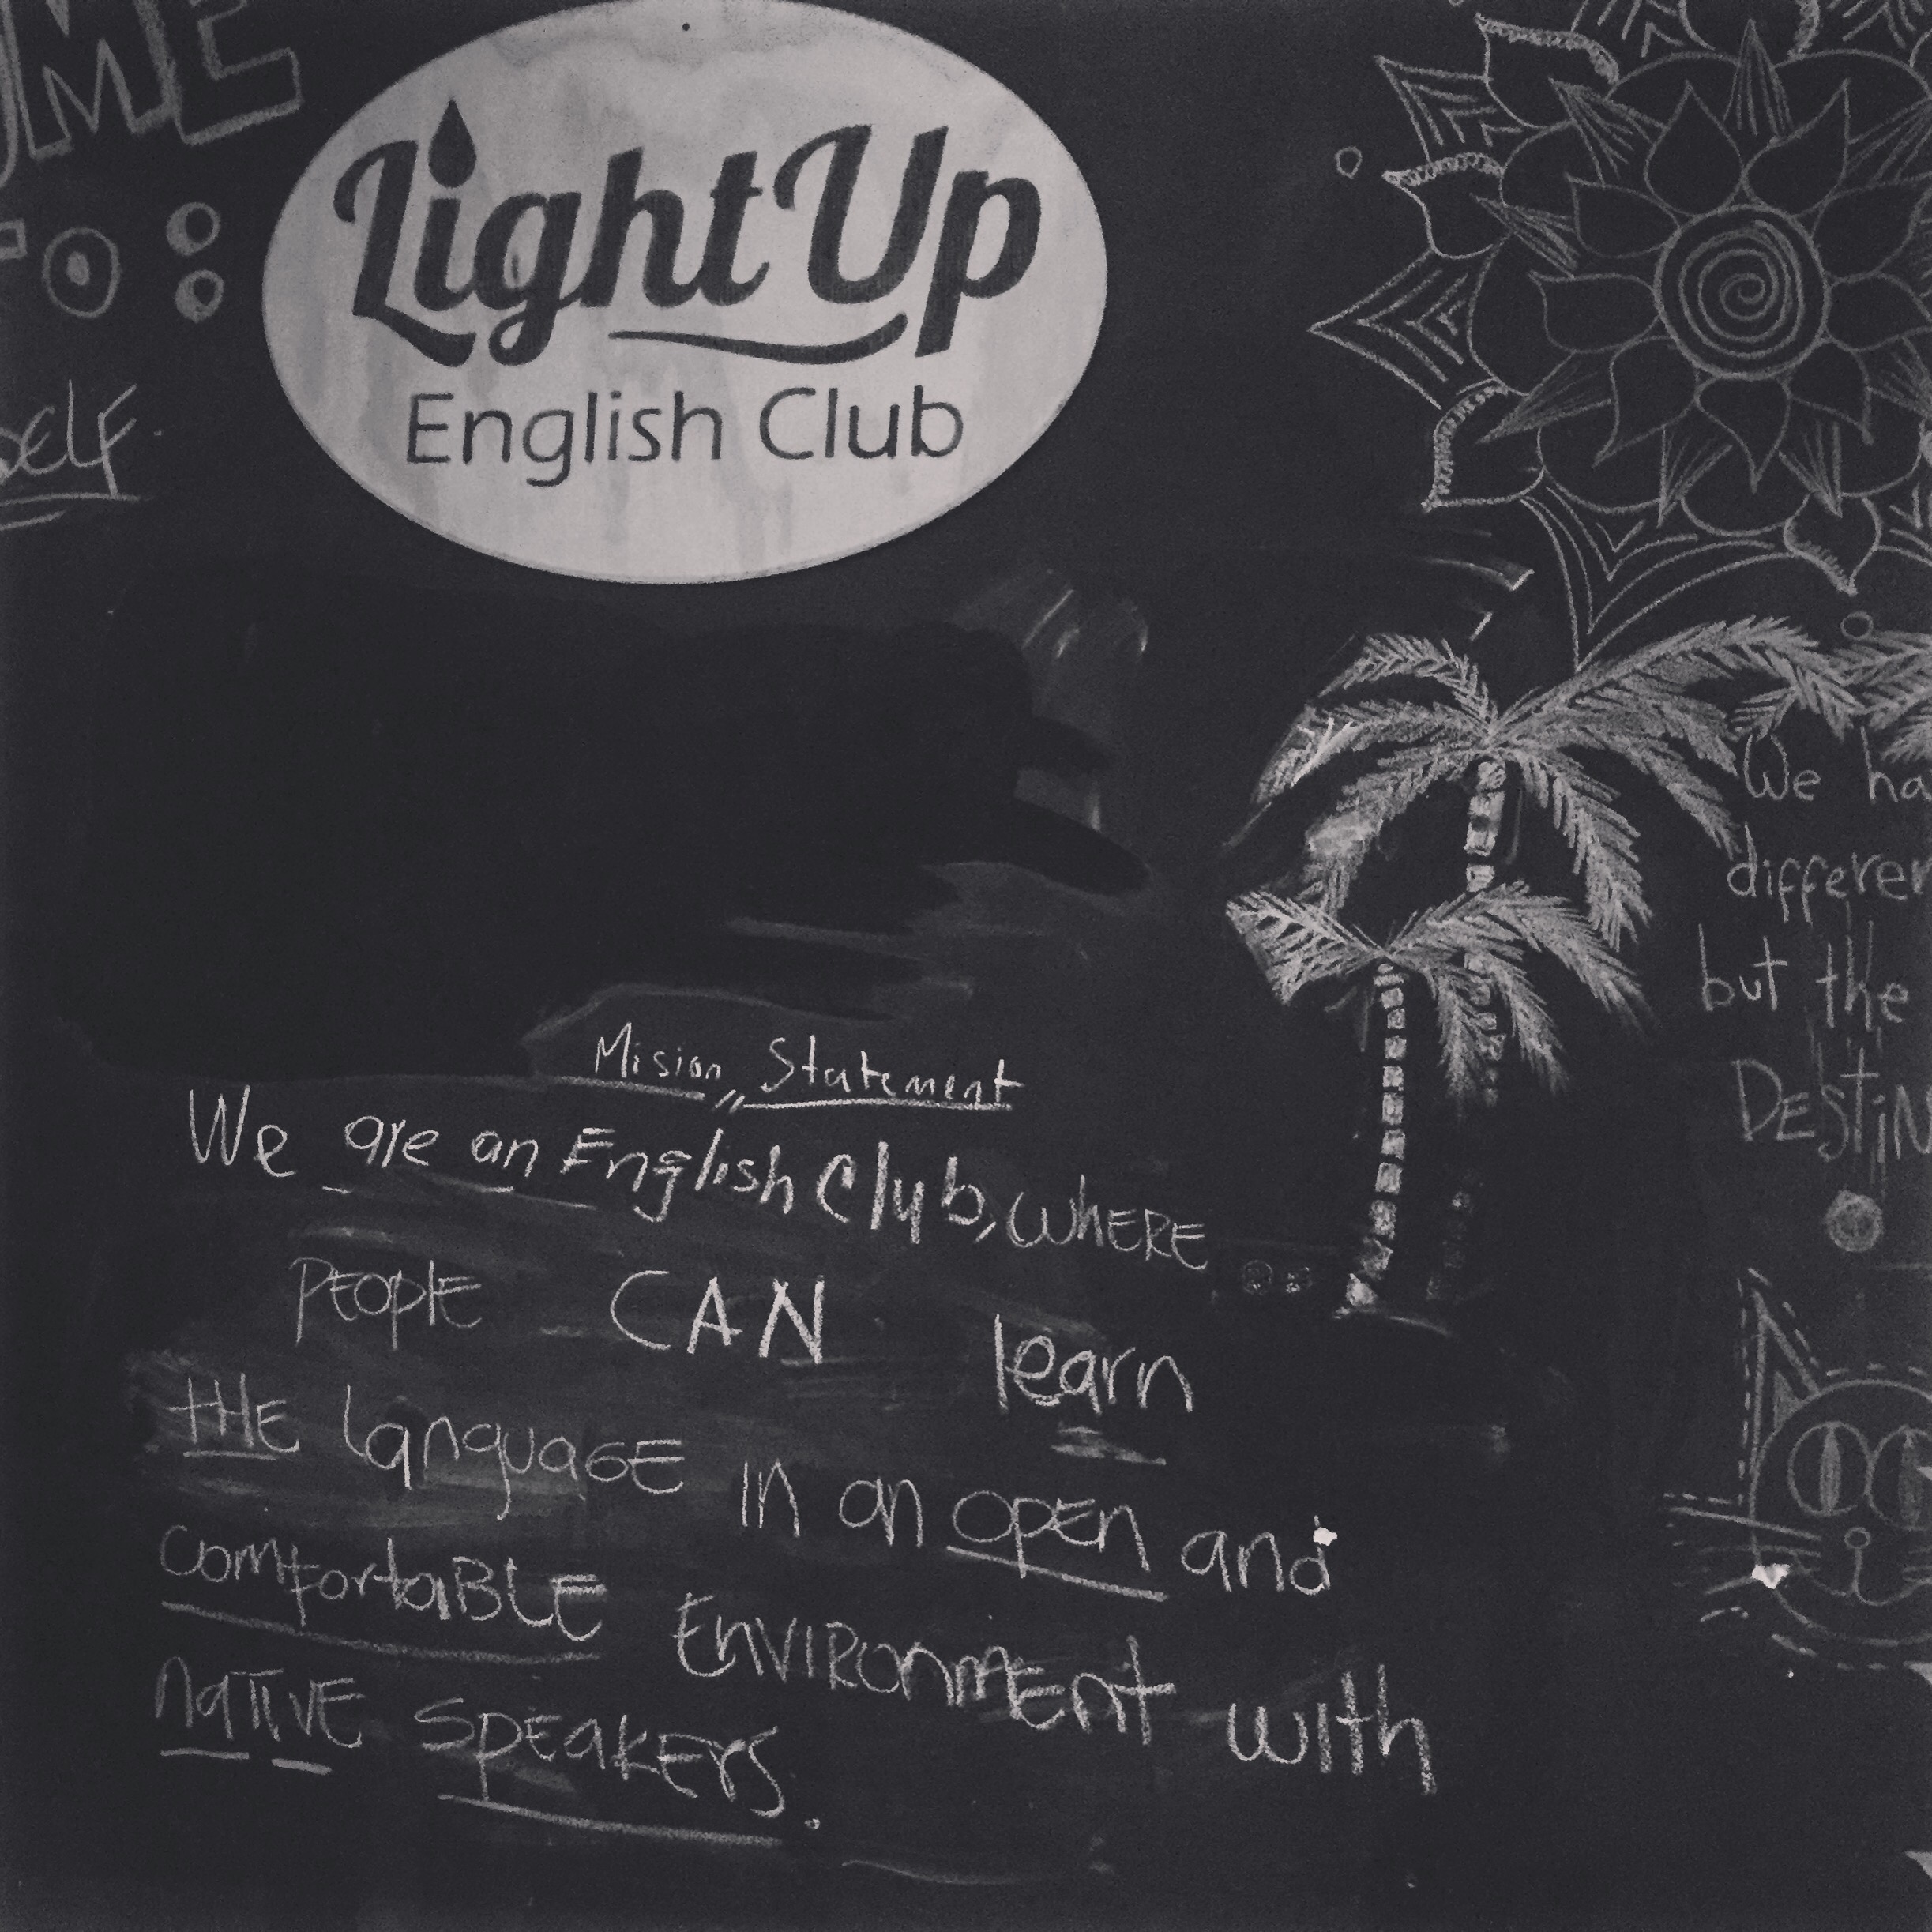 Light Up
English Club
Mision Statement
We are an English Club, wHERE
PEOPlE CAN learn
tHE languaGE in an OPEn and
comfortaBLE EnVIROnmEnt with
naTIVE SPEakErs.
We
but the